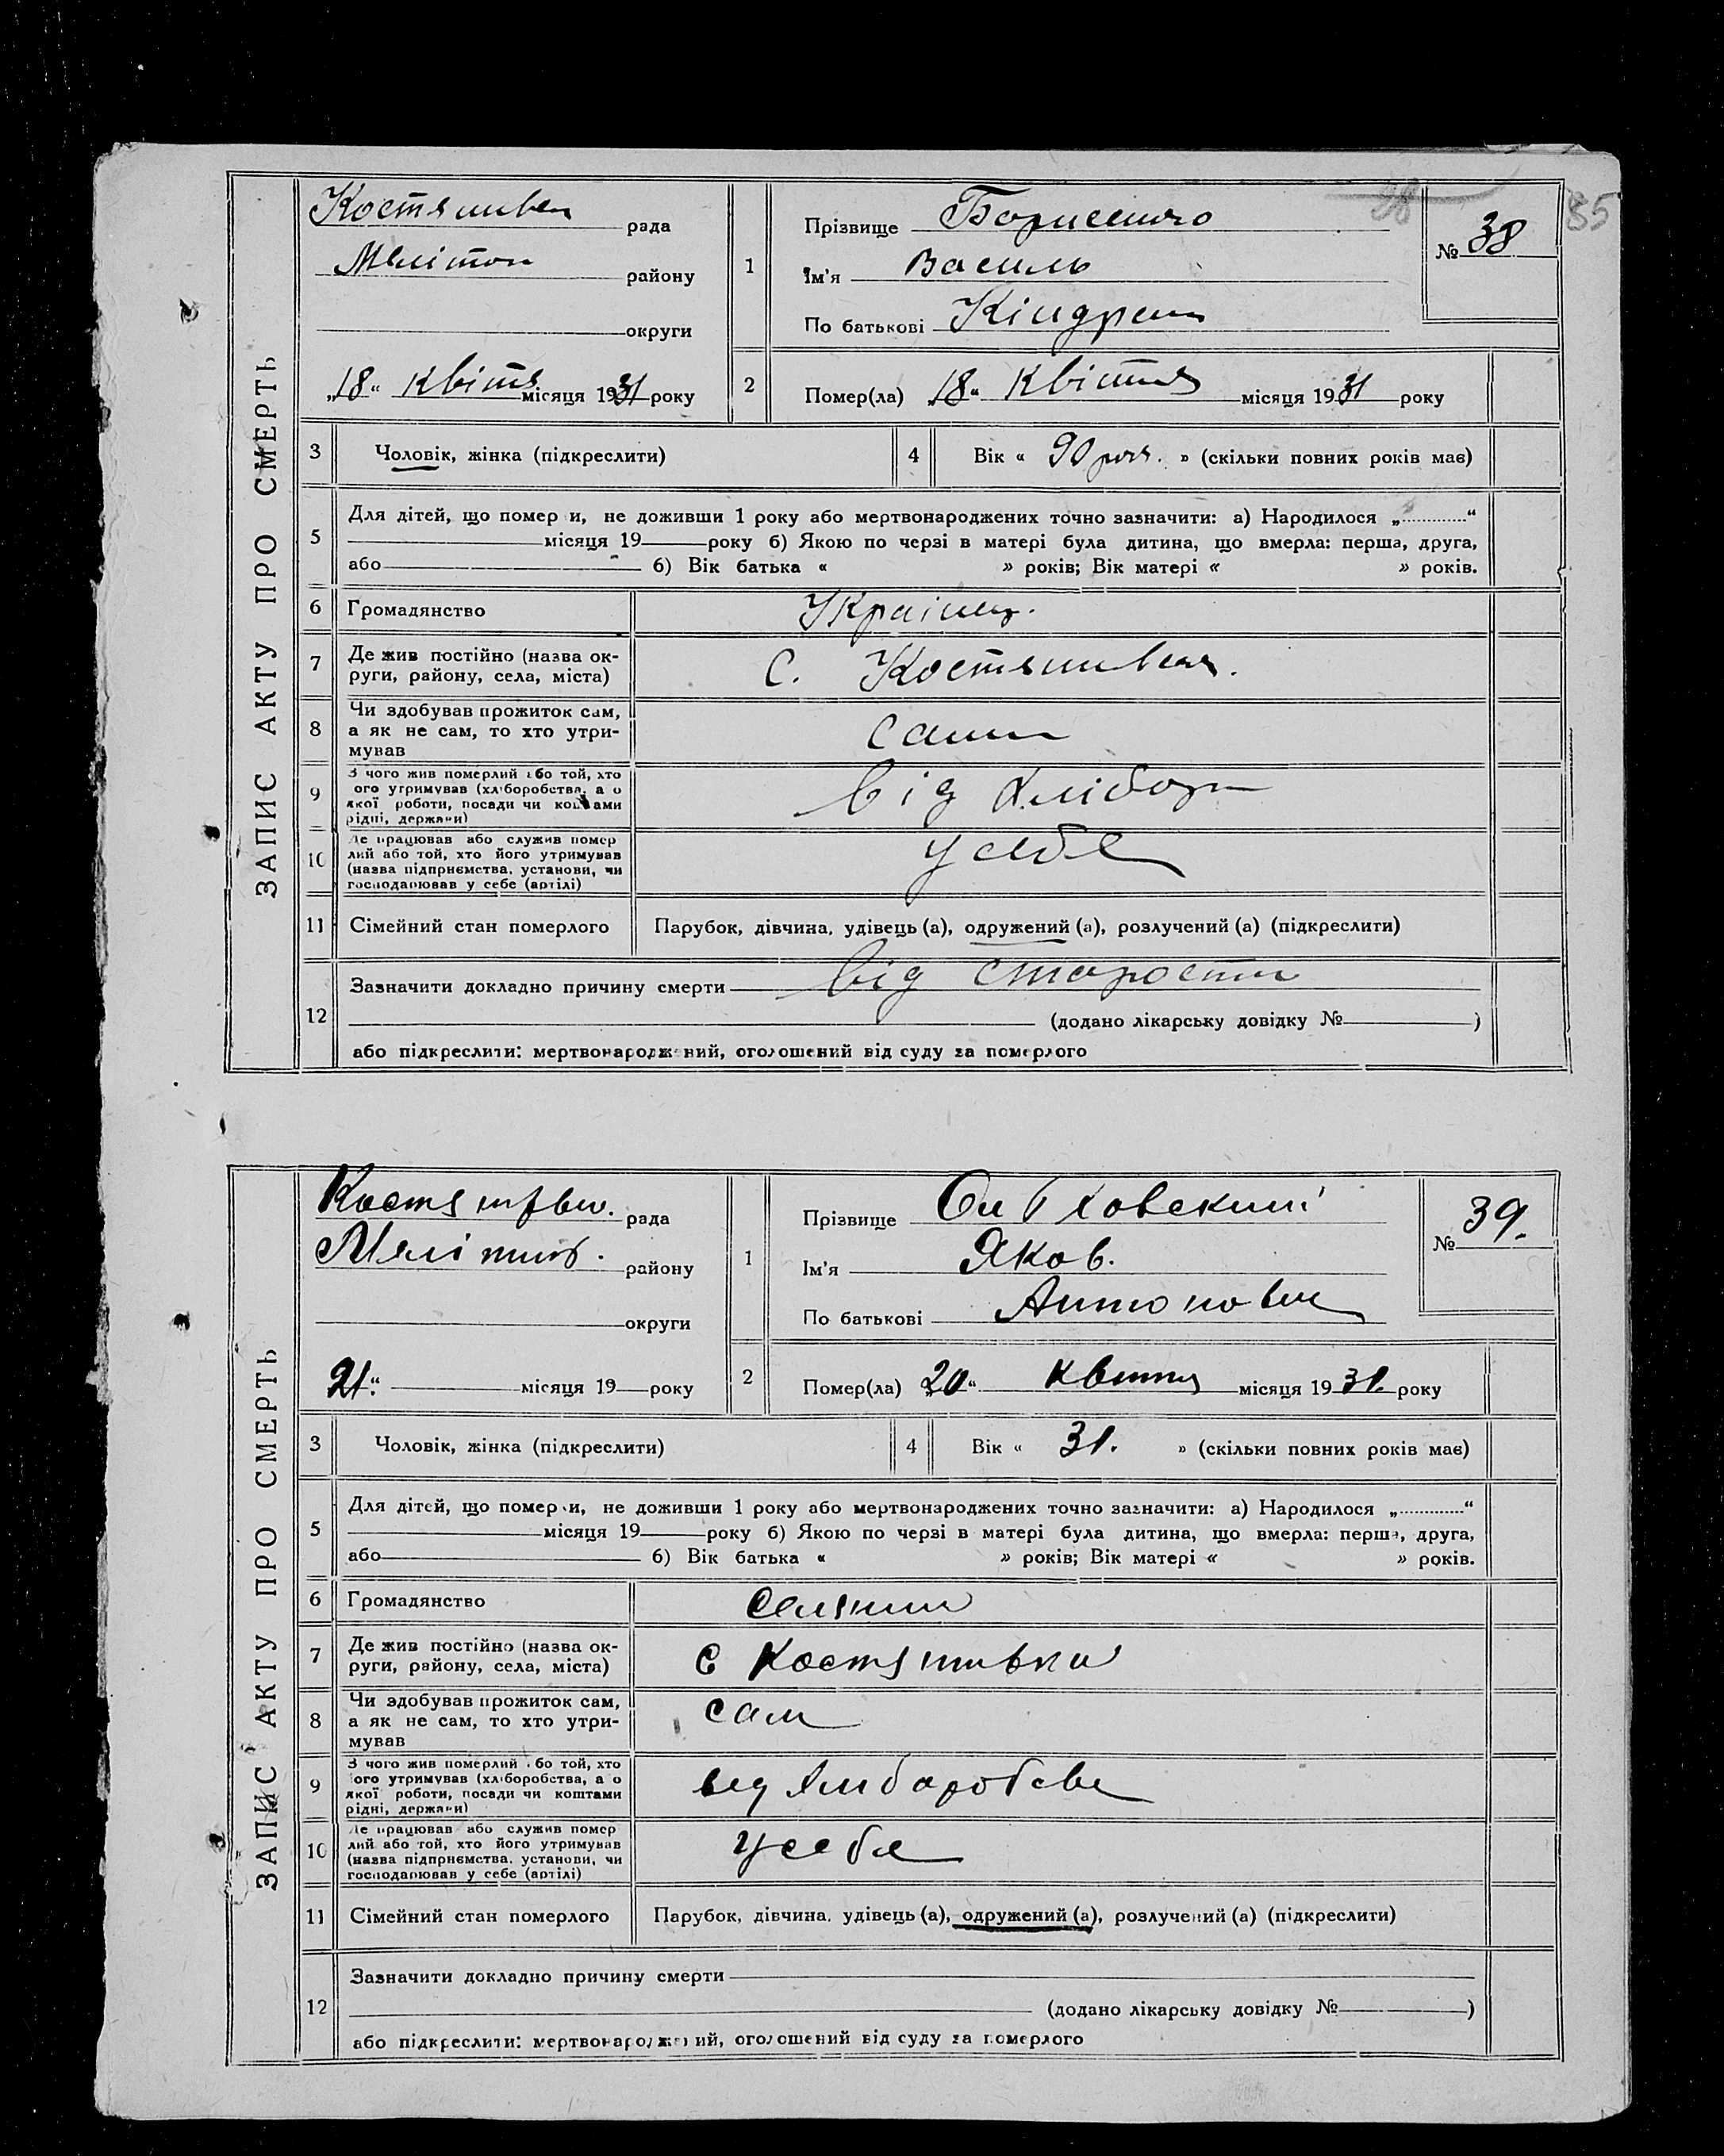 ЗАПИС АКТУ ПРО СМЕРТЬ
35
Костянтивен рада
Меліпон району
округи
„18“ квітя місяця 1931 року
1
Прізвище Борисенко
Ім'я Василь
По батькові Кіндрат
№ 38
2
Помер(ла) „18“ квітня місяця 1931 року
3 Чоловік, жінка (підкреслити)
4 Вік « 90 рок. » (скільки повних років має)
5 Для дітей, що помер и, не доживши 1 року або мертвонароджених точно зазначити: а) Народилося „............“
місяця 19 року б) Якою по черзі в матері була дитина, що вмерла: перша, друга,
або б) Вік батька « » років; Вік матері « » років.
6 Громадянство Україець.
7 Де жив постійно (назва ок-
руги, району, села, міста)
С. Костянтивка.
8 Чи здобував прожиток сам,
а як не сам, то хто утри-
мував
сами
9 З чого жив померлий або той, хто
ого утримував (хліборобства, а о
якої роботи, посади чи коштами
рідні, держави)
від хлібор
10 Де працював або служив помер
лий або той, хто його утримував
(назва підприємства, установи, чи
господарював у себе (артілі)
у себе
11 Сімейний стан померлого Парубок, дівчина, удівець (а), одружений (а), розлучений (а) (підкреслити)
12 Зазначити докладно причину смерти від старости
(додано лікарську довідку № )
або підкреслити: мертвонароджений, оголошений від суду за померлого
ЗАПИС АКТУ ПРО СМЕРТЬ
Костянтивн. рада
Меліпот. району
округи
„21“ місяця 19 року
1
Прізвище
Ім'я Яков.
По батькові Антонович
№ 39.
2
Помер(ла) „20“ квітня місяця 1931. року
3 Чоловік, жінка (підкреслити)
4 Вік « 31. » (скільки повних років має)
5 Для дітей, що помер и, не доживши 1 року або мертвонароджених точно зазначити: а) Народилося „............“
місяця 19 року б) Якою по черзі в матері була дитина, що вмерла: перша, друга,
або б) Вік батька « » років; Вік матері « » років.
6 Громадянство селянин
7 Де жив постійно (назва ок-
руги, району, села, міста)
с Костянтивки
8 Чи здобував прожиток сам,
а як не сам, то хто утри-
мував
сам
9 З чого жив померлий або той, хто
ого утримував (хліборобства, а о
якої роботи, посади чи коштами
рідні, держави)
від хлиборобсве
10 Де працював або служив помер
лий або той, хто його утримував
(назва підприємства, установи, чи
господарював у себе (артілі)
у себе
11 Сімейний стан померлого Парубок, дівчина, удівець (а), одружений (а), розлучений (а) (підкреслити)
12 Зазначити докладно причину смерти
(додано лікарську довідку № )
або підкреслити: мертвонароджений, оголошений від суду за померлого